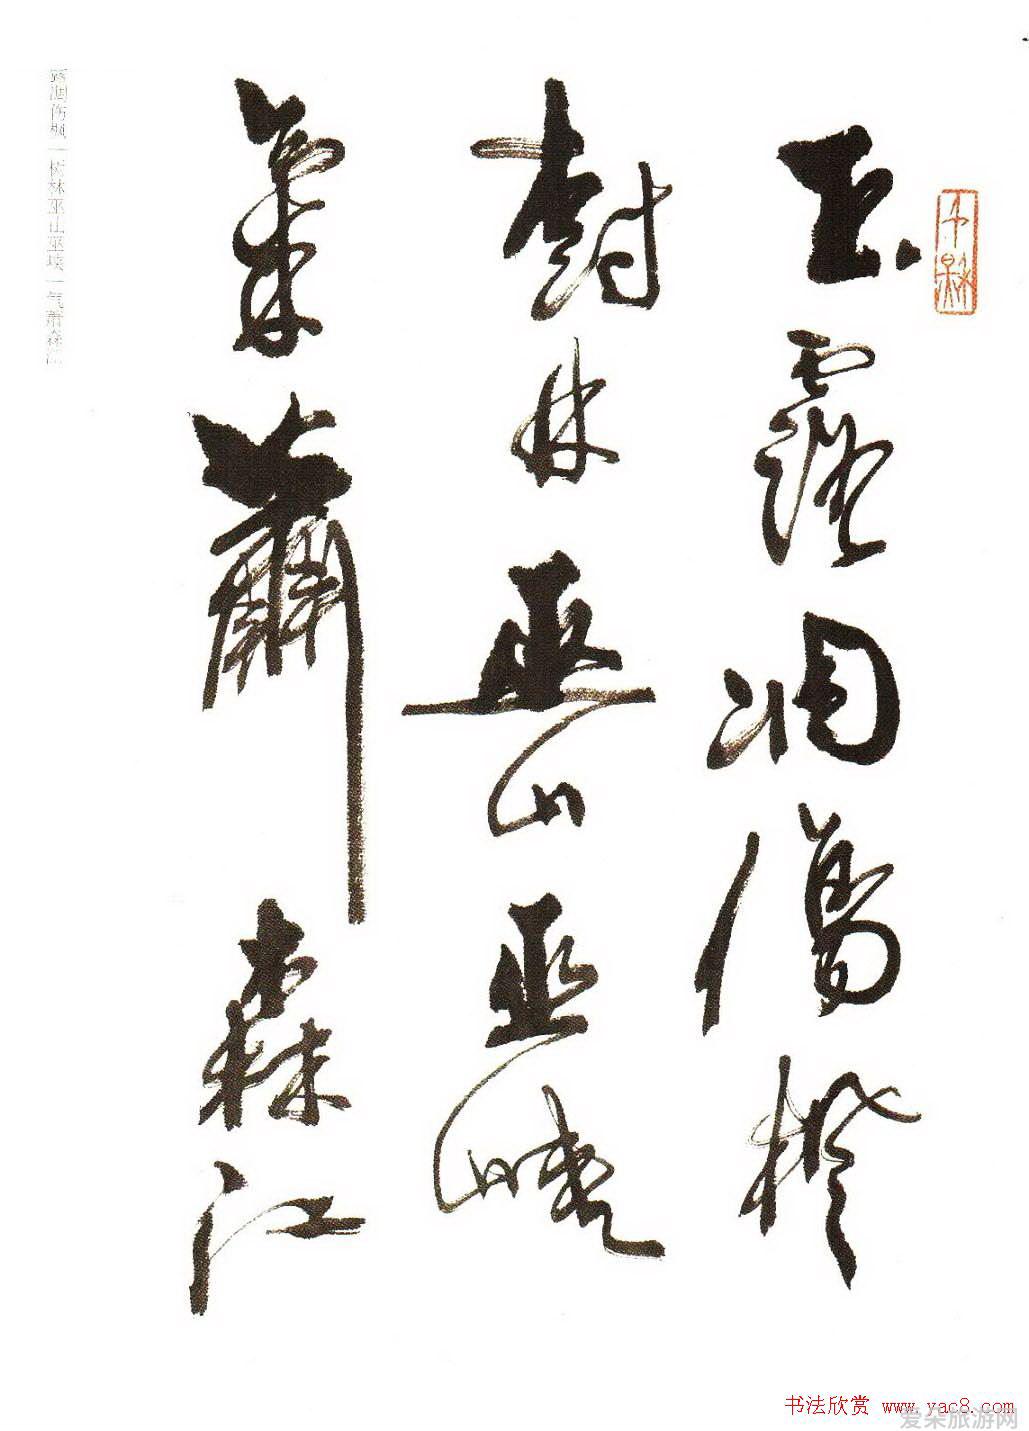 玉露凋傷楓
樹林巫山巫峽
氣蕭森江
露凋伤枫一树林巫山巫峡一气萧森江
书法欣赏 www.yac8.com
爱朵旅游网